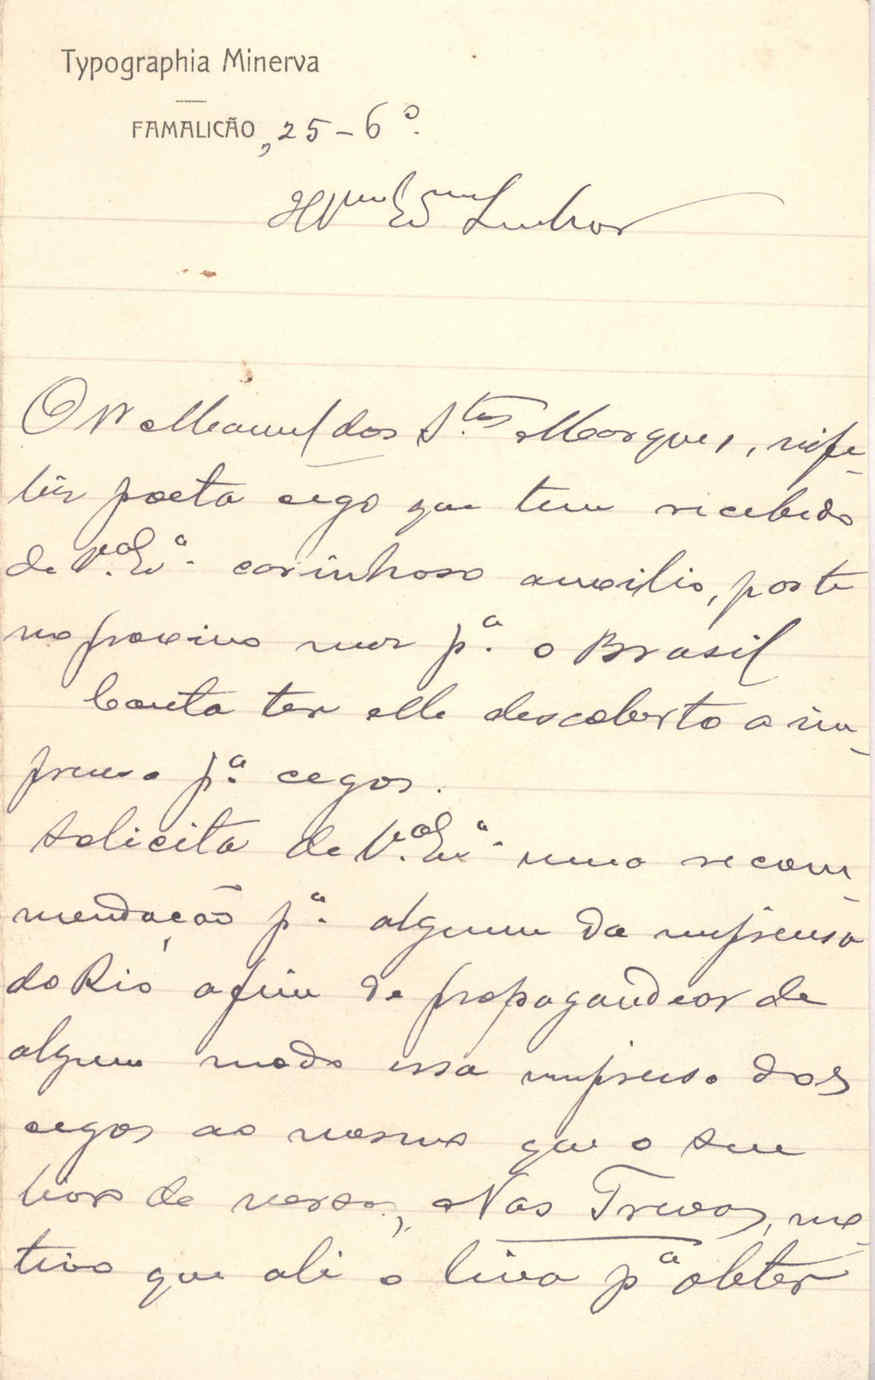 Typographia Minerva
FAMALICÃO, 25-6º.
Illmo Exmo Senhor
O Sr Manuel dos S.tos Marques, infe-
liz poeta cego que tem recebido
de V.ª Exª. carinhoso auxilio, parte
no proximo mez pª. o Brasil
Consta ter elle descoberto a im-
prensa pª. cegos.
Solicita de V.ª Exª. uma recom-
mendação pª. alguem da imprensa
do Rio afim de propagandear de
algum modo essa imprensa dos
cegos ao mesmo que o seu
livro de versos, Nas Trevas, mo-
tivo que ali o leva pª obter